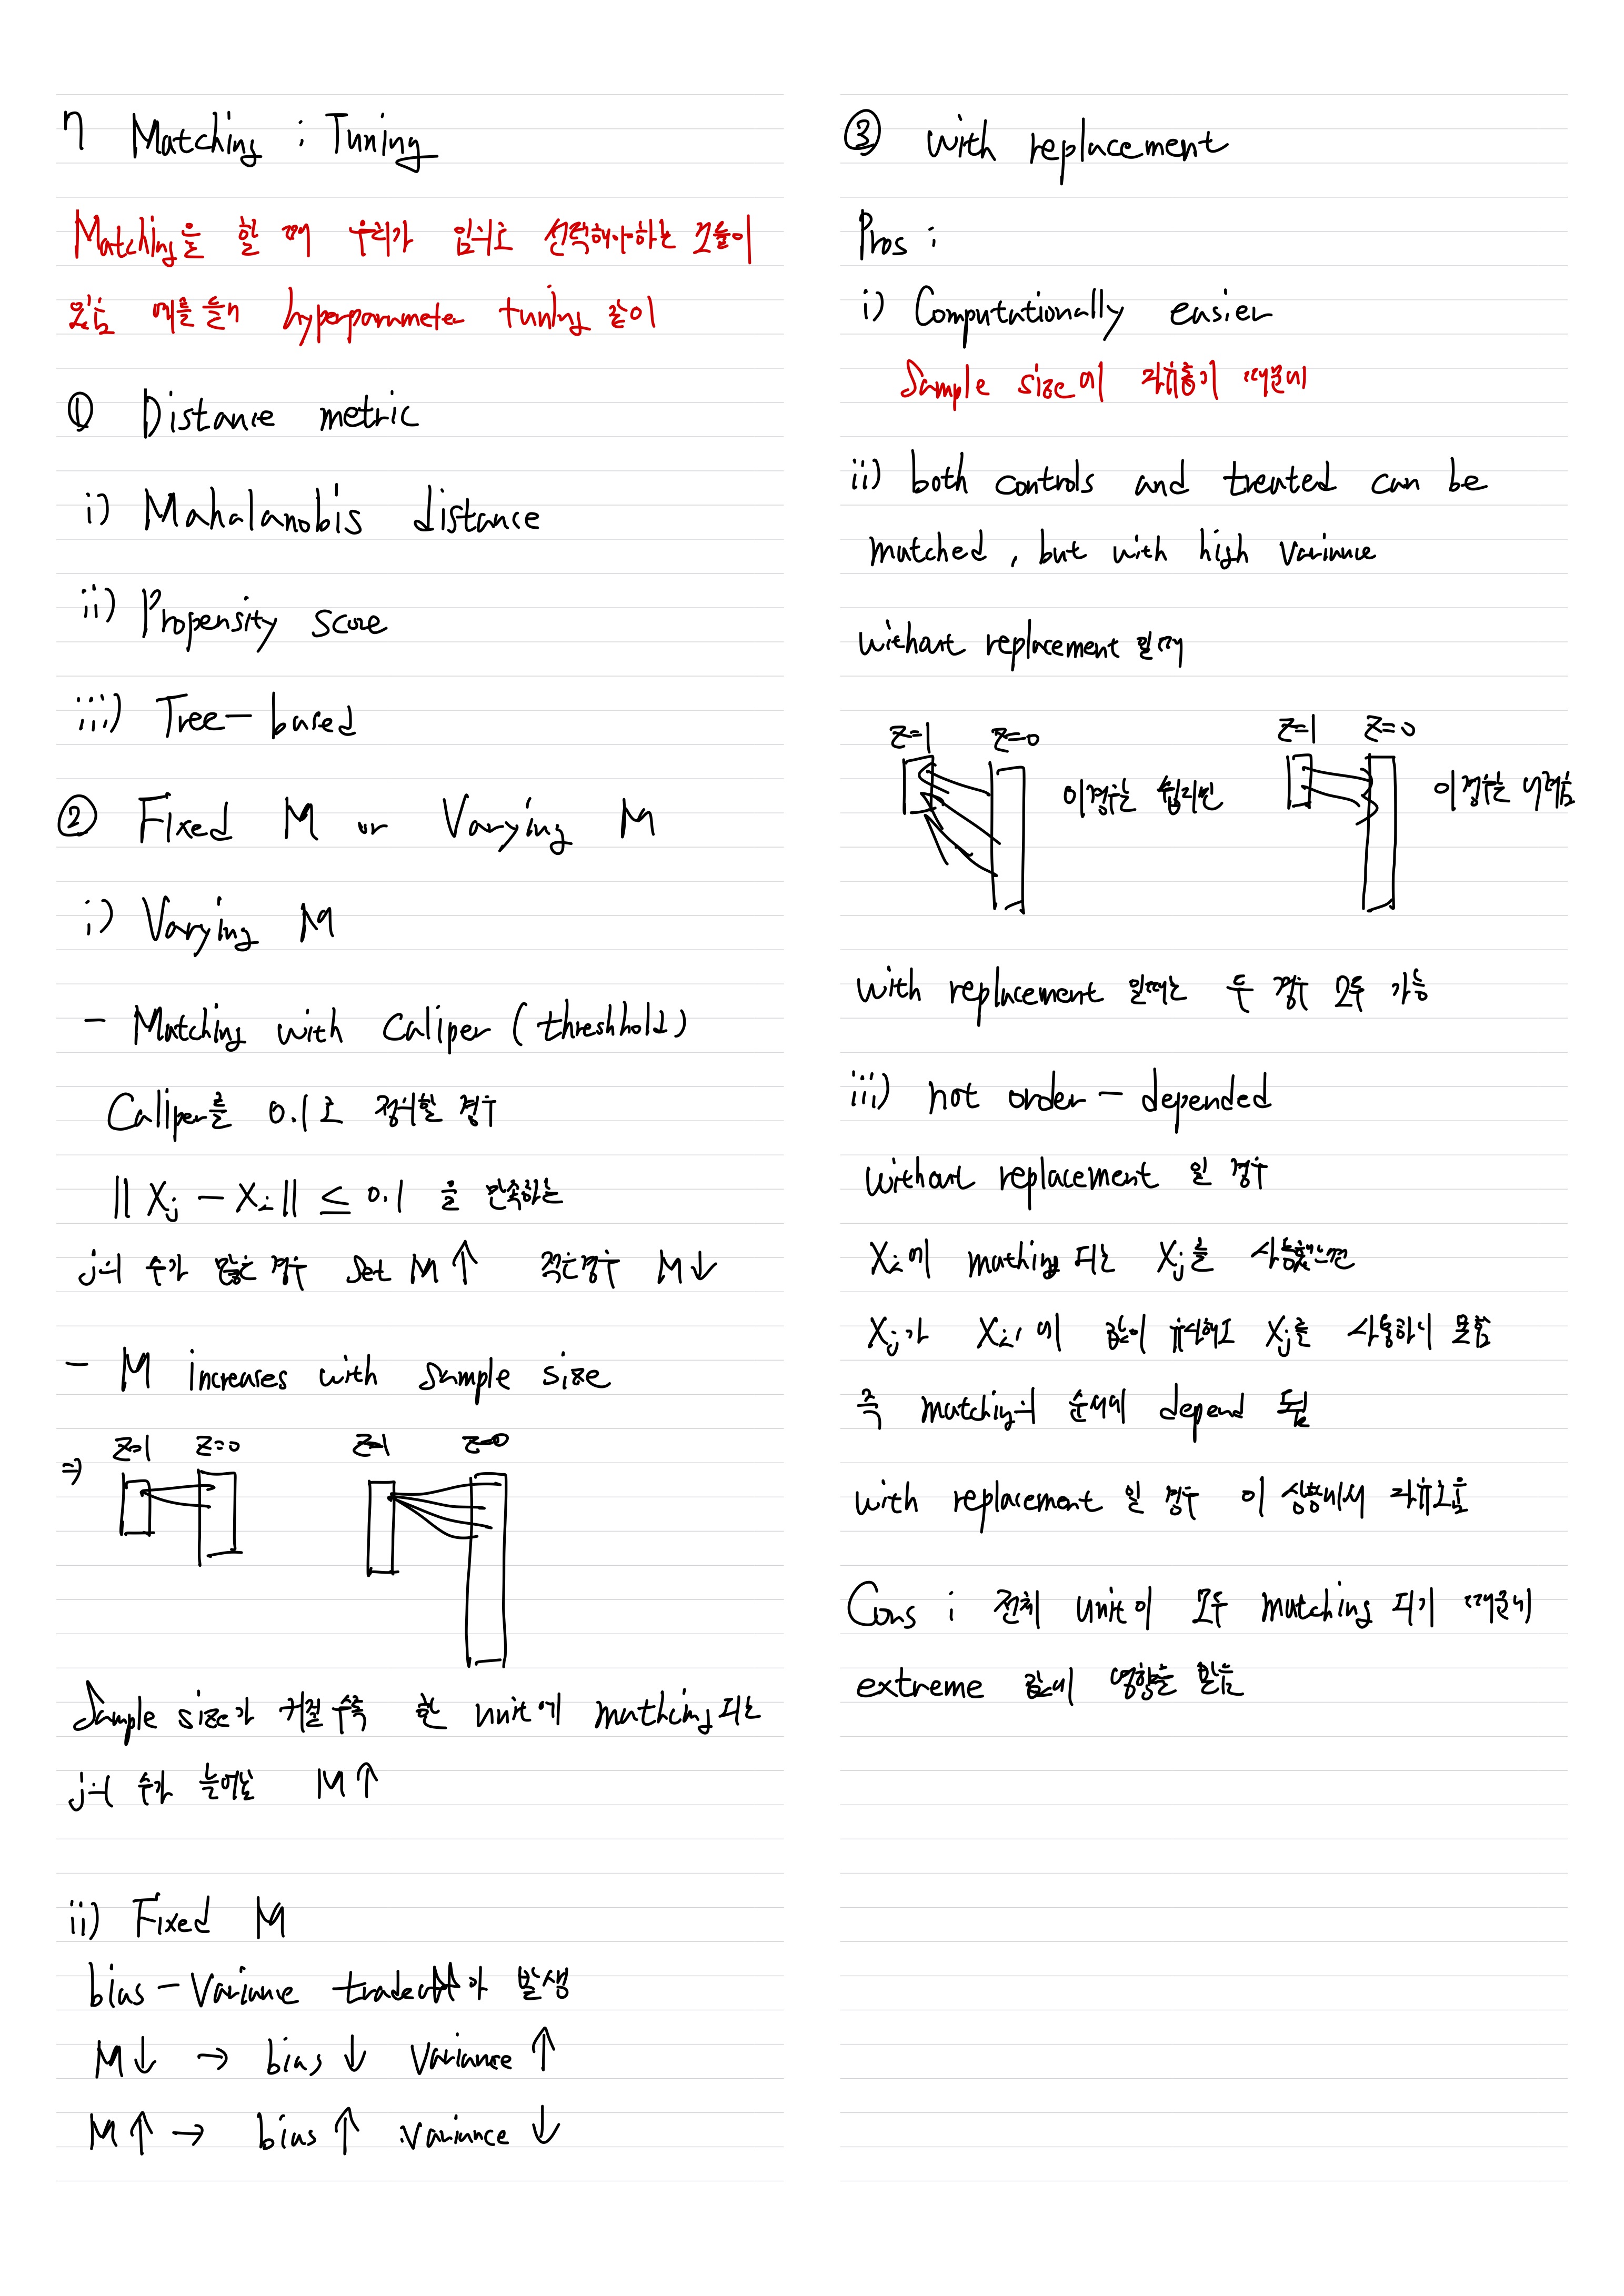 7 Matching : Tuning
Matching을 할 때 우리가 임의로 선택해야하는 것들이
있음 예를들어 hyperparameter tuning 같이
① Distance metric
i) Mahalanobis distance
ii) Propensity score
iii) Tree-based
② Fixed M or Varying M
i) Varying M
- Matching with Caliper (threshhold)
Caliper를 0.1로 정의할 경우
|| Xj - Xi || ≤ 0.1 을 만족하는
j의 수가 많은 경우 Set M ↑ 적은경우 M↓
- M increases with sample size
Z=1 Z=0 Z=1 Z=0
⇒
Sample size가 커질수록 한 unit에 mathcing되는
j의 수가 늘어남 M↑
ii) Fixed M
bias-Variance tradeoff가 발생
M↓ → bias ↓ Variance ↑
M↑ → bias ↑ variance ↓
③ with replacement
Pros :
i) Computationally easier
Sample size에 자유롭기 때문에
ii) both controls and treated can be
matched, but with high variance
without replacement 일때
Z=1 Z=0 Z=1 Z=0
이경우는 쉽지만 이경우는 어려움
with replacement 일때는 두 경우 모두 가능
iii) not order-depended
without replacement 일 경우
Xi에 mathing 되는 Xj를 사용했으면
Xj가 Xi'에 값이 유사해도 Xj를 사용하지 못함
즉 matching의 순서에 depend 됨
with replacement 일 경우 이 상황에서 자유로움
Cons : 전체 unit이 모두 matching 되기 때문에
extreme 값에 영향을 받음